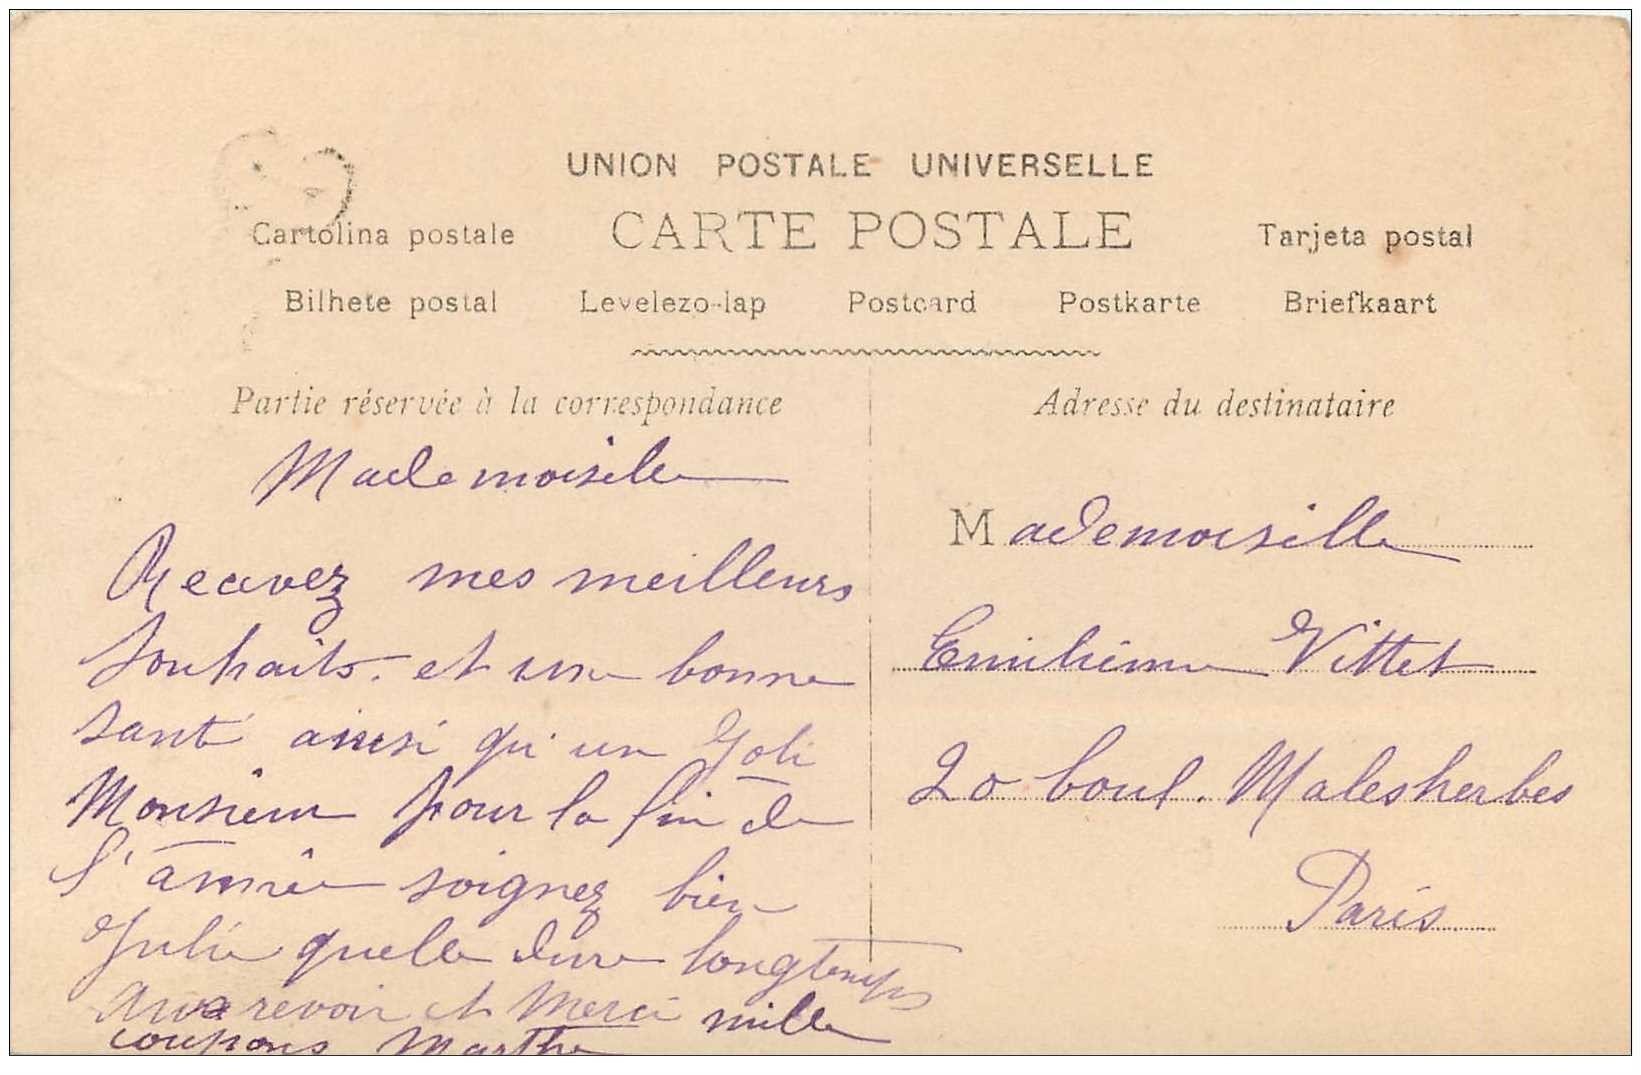 UNION POSTALE UNIVERSELLE
Cartolina postale CARTE POSTALE Tarjeta postal
Bilhete postal Levelezo-lap Postcard Postkarte Briefkaart
Partie réservée à la correspondance
Mademoiselle
Recevez mes meilleurs
souhaits. et une bonne
santé ainsi qu'un Joli
Monsieur pour la fin de
l'année soignez bien
Julie quelle dure longtemps
revoir et Merci mille
coupons Marthe
Adresse du destinataire
Mademoiselle
Emilienne Vittet
20 boul. Malesherbes
Paris